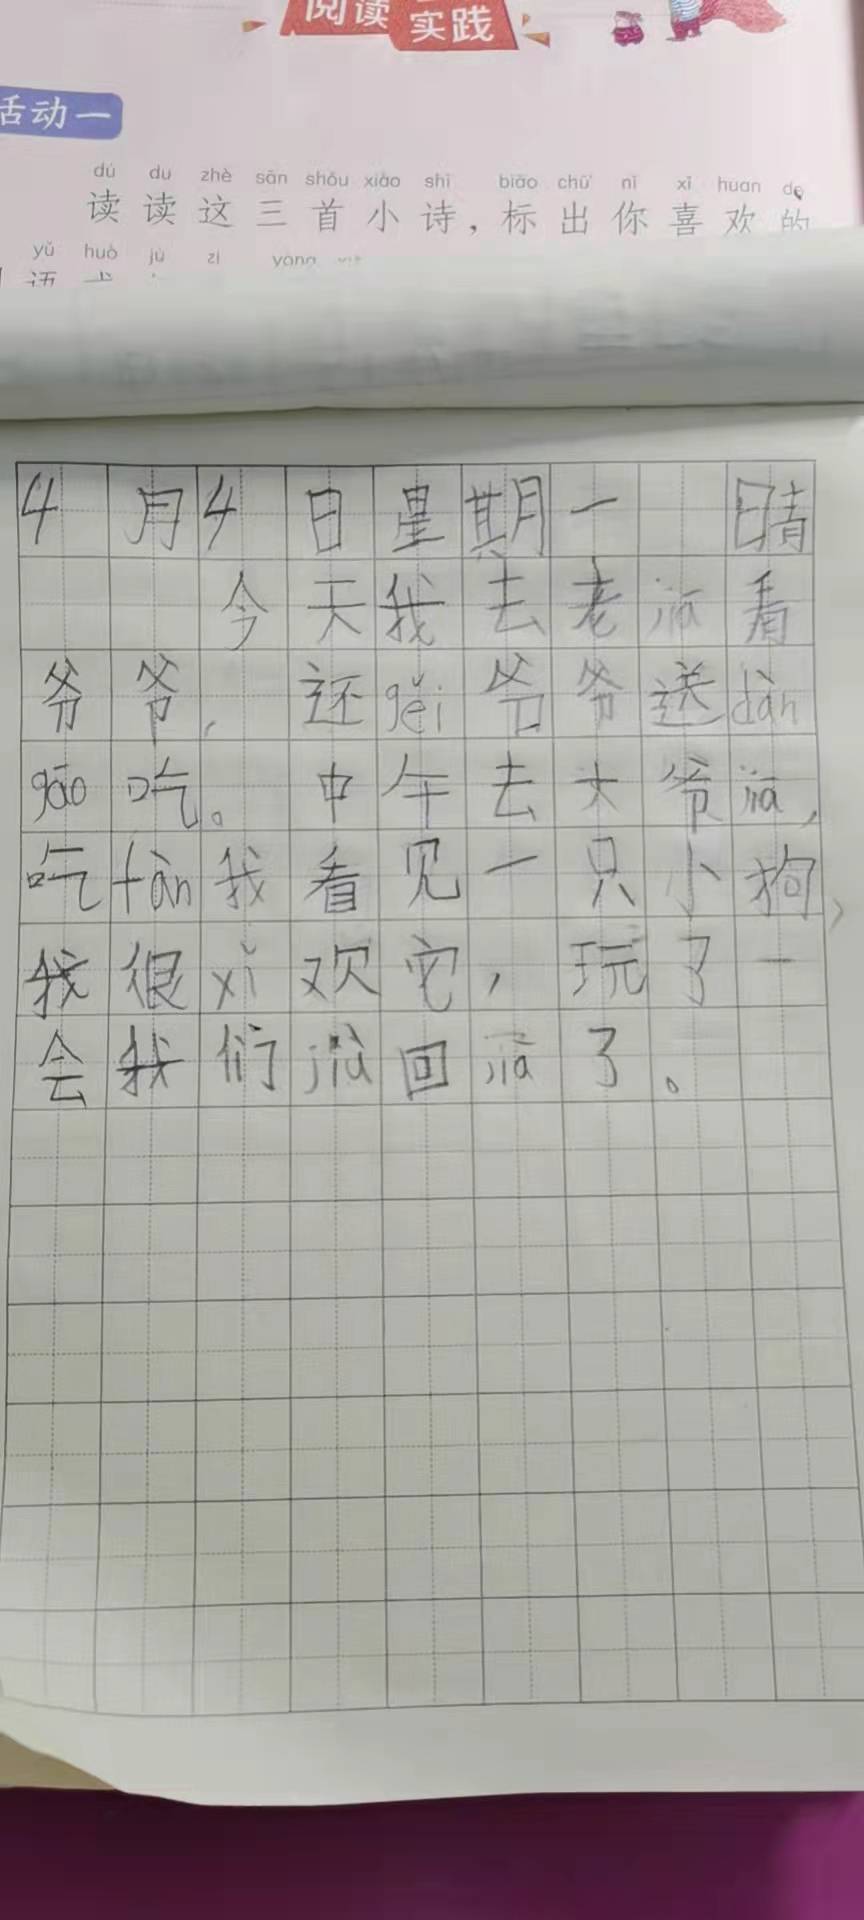 阅读
实践
活动一
dú du zhè sān shǒu xiǎo shī biāo chū nǐ xǐ huan de
读读这三首小诗，标出你喜欢的
yǔ huò jù zi
4月4日星期一 晴
今天我去老jiā看
爷爷，还gěi爷爷送dàn
gāo吃。中午去大爷jiā，
吃fàn我看见一只小狗，
我很xǐ欢它，玩了一
会我们jiù回jiā了。